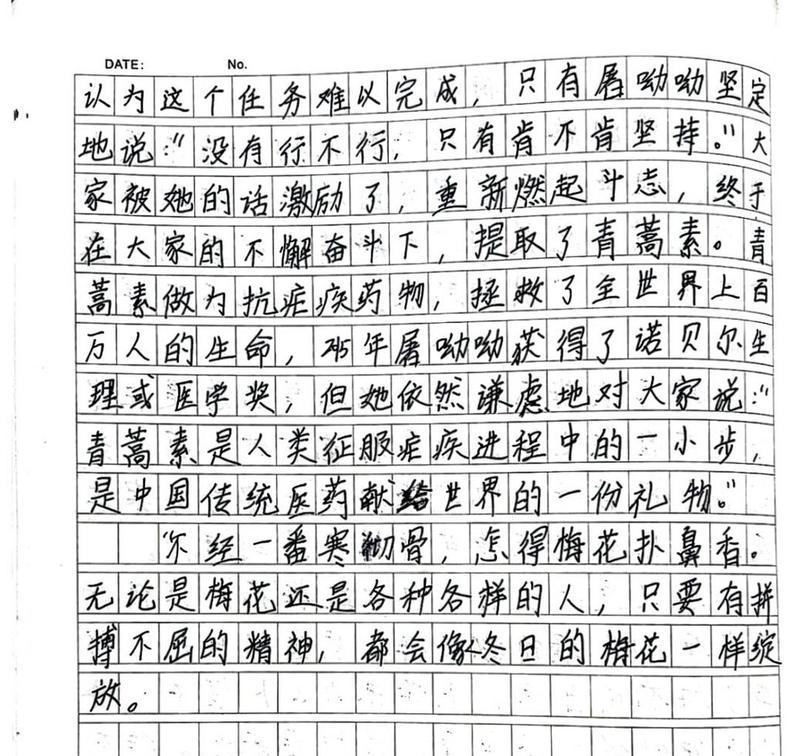 DATE: No.
认为这个任务难以完成，只有屠呦呦坚定
地说：“没有行不行，只有肯不肯坚持。”大
家被她的话激励了，重新燃起斗志，终于
在大家的不懈奋斗下，提取了青蒿素。青
蒿素做为抗疟疾药物，拯救了全世界上百
万人的生命，2015年屠呦呦获得了诺贝尔生
理或医学奖，但她依然谦虚地对大家说：“
青蒿素是人类征服疟疾进程中的一小步，
是中国传统医药献给世界的一份礼物。”
“不经一番寒彻骨，怎得梅花扑鼻香。
无论是梅花还是各种各样的人，只要有拼
搏不屈的精神，都会像冬日的梅花一样绽
放。